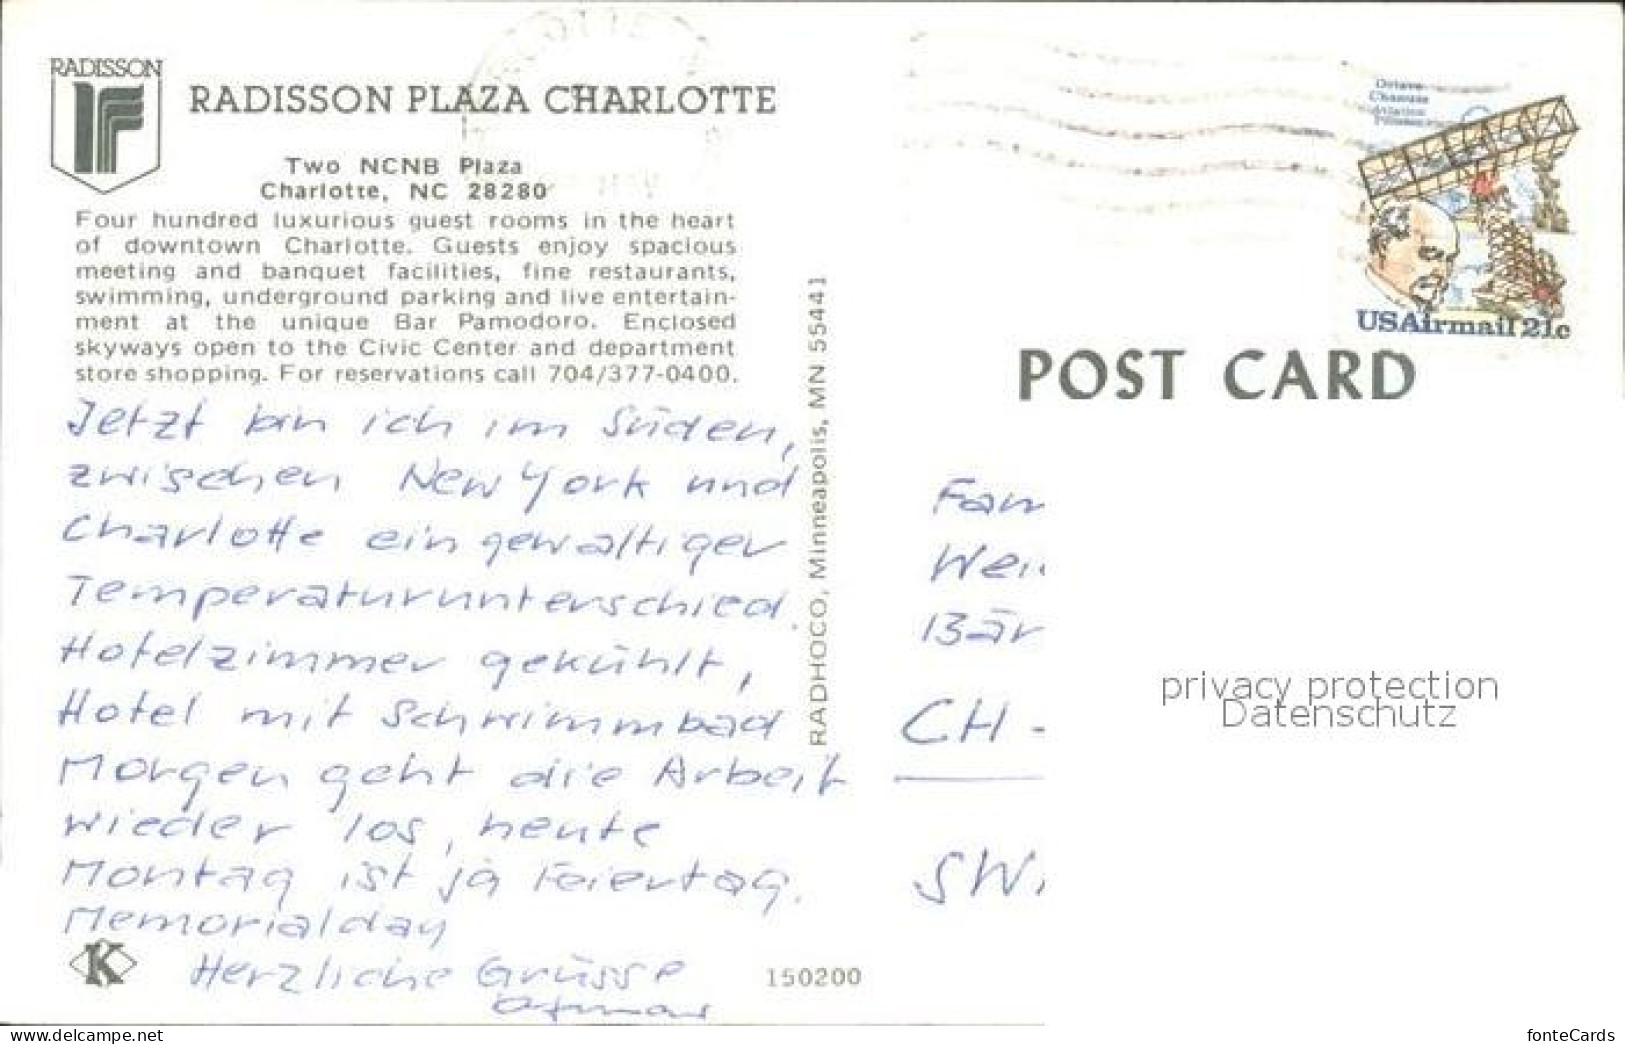 RADISSON
RADISSON PLAZA CHARLOTTE
Two NCNB Plaza
Charlotte, NC 28280
Four hundred luxurious guest rooms in the heart
of downtown Charlotte. Guests enjoy spacious
meeting and banquet facilities, fine restaurants,
swimming, underground parking and live entertain-
ment at the unique Bar Pamodoro. Enclosed
skyways open to the Civic Center and department
store shopping. For reservations call 704/377-0400.
Jetzt bin ich im Süden,
zwischen New York und
Charlotte ein gewaltiger
Temperaturunterschied.
Hotelzimmer gekühlt,
Hotel mit Schwimmbad
Morgen geht die Arbeit
wieder los, heute
Montag ist ja Feiertag.
Memorialday
Herzliche Grüsse
Othmar
K
150200
RADHOCO, Minneapolis, MN 55441
Octave
Chanute
Aviation
Pioneer
USAirmail 21c
POST CARD
Fam
Wei
Bär
CH -
SWi
privacy protection
Datenschutz
www.delcampe.net
fonteCards